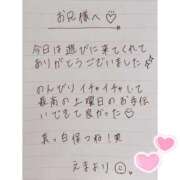 お兄様へ♡
今日は遊びに来てくれて
ありがとうございました
のんびりイチャイチャして
最高の土曜日のお手伝
いできて良かった♡
真っ白保つね!笑
えまより